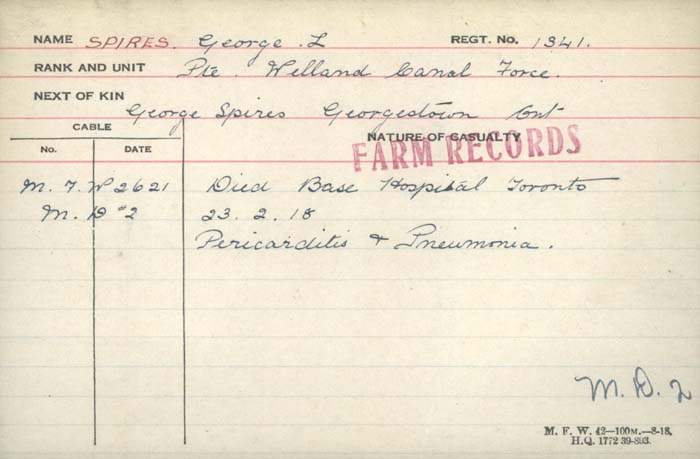 NAME SPIRES. George. L REGT. No. 1341.
RANK AND UNIT Pte. Welland Canal Force.
NEXT OF KIN
George Spires Georgetown Ont
CABLE NATURE OF CASUALTY
FARM RECORDS
No. DATE
M. F. W 2621 Died Base Hospital Toronto
M. D #2 23. 2. 18
Pericarditis & Pneumonia.
M. D. 2
M. F. W. 42—100M.—8-18.
H.Q. 1772 39-893.